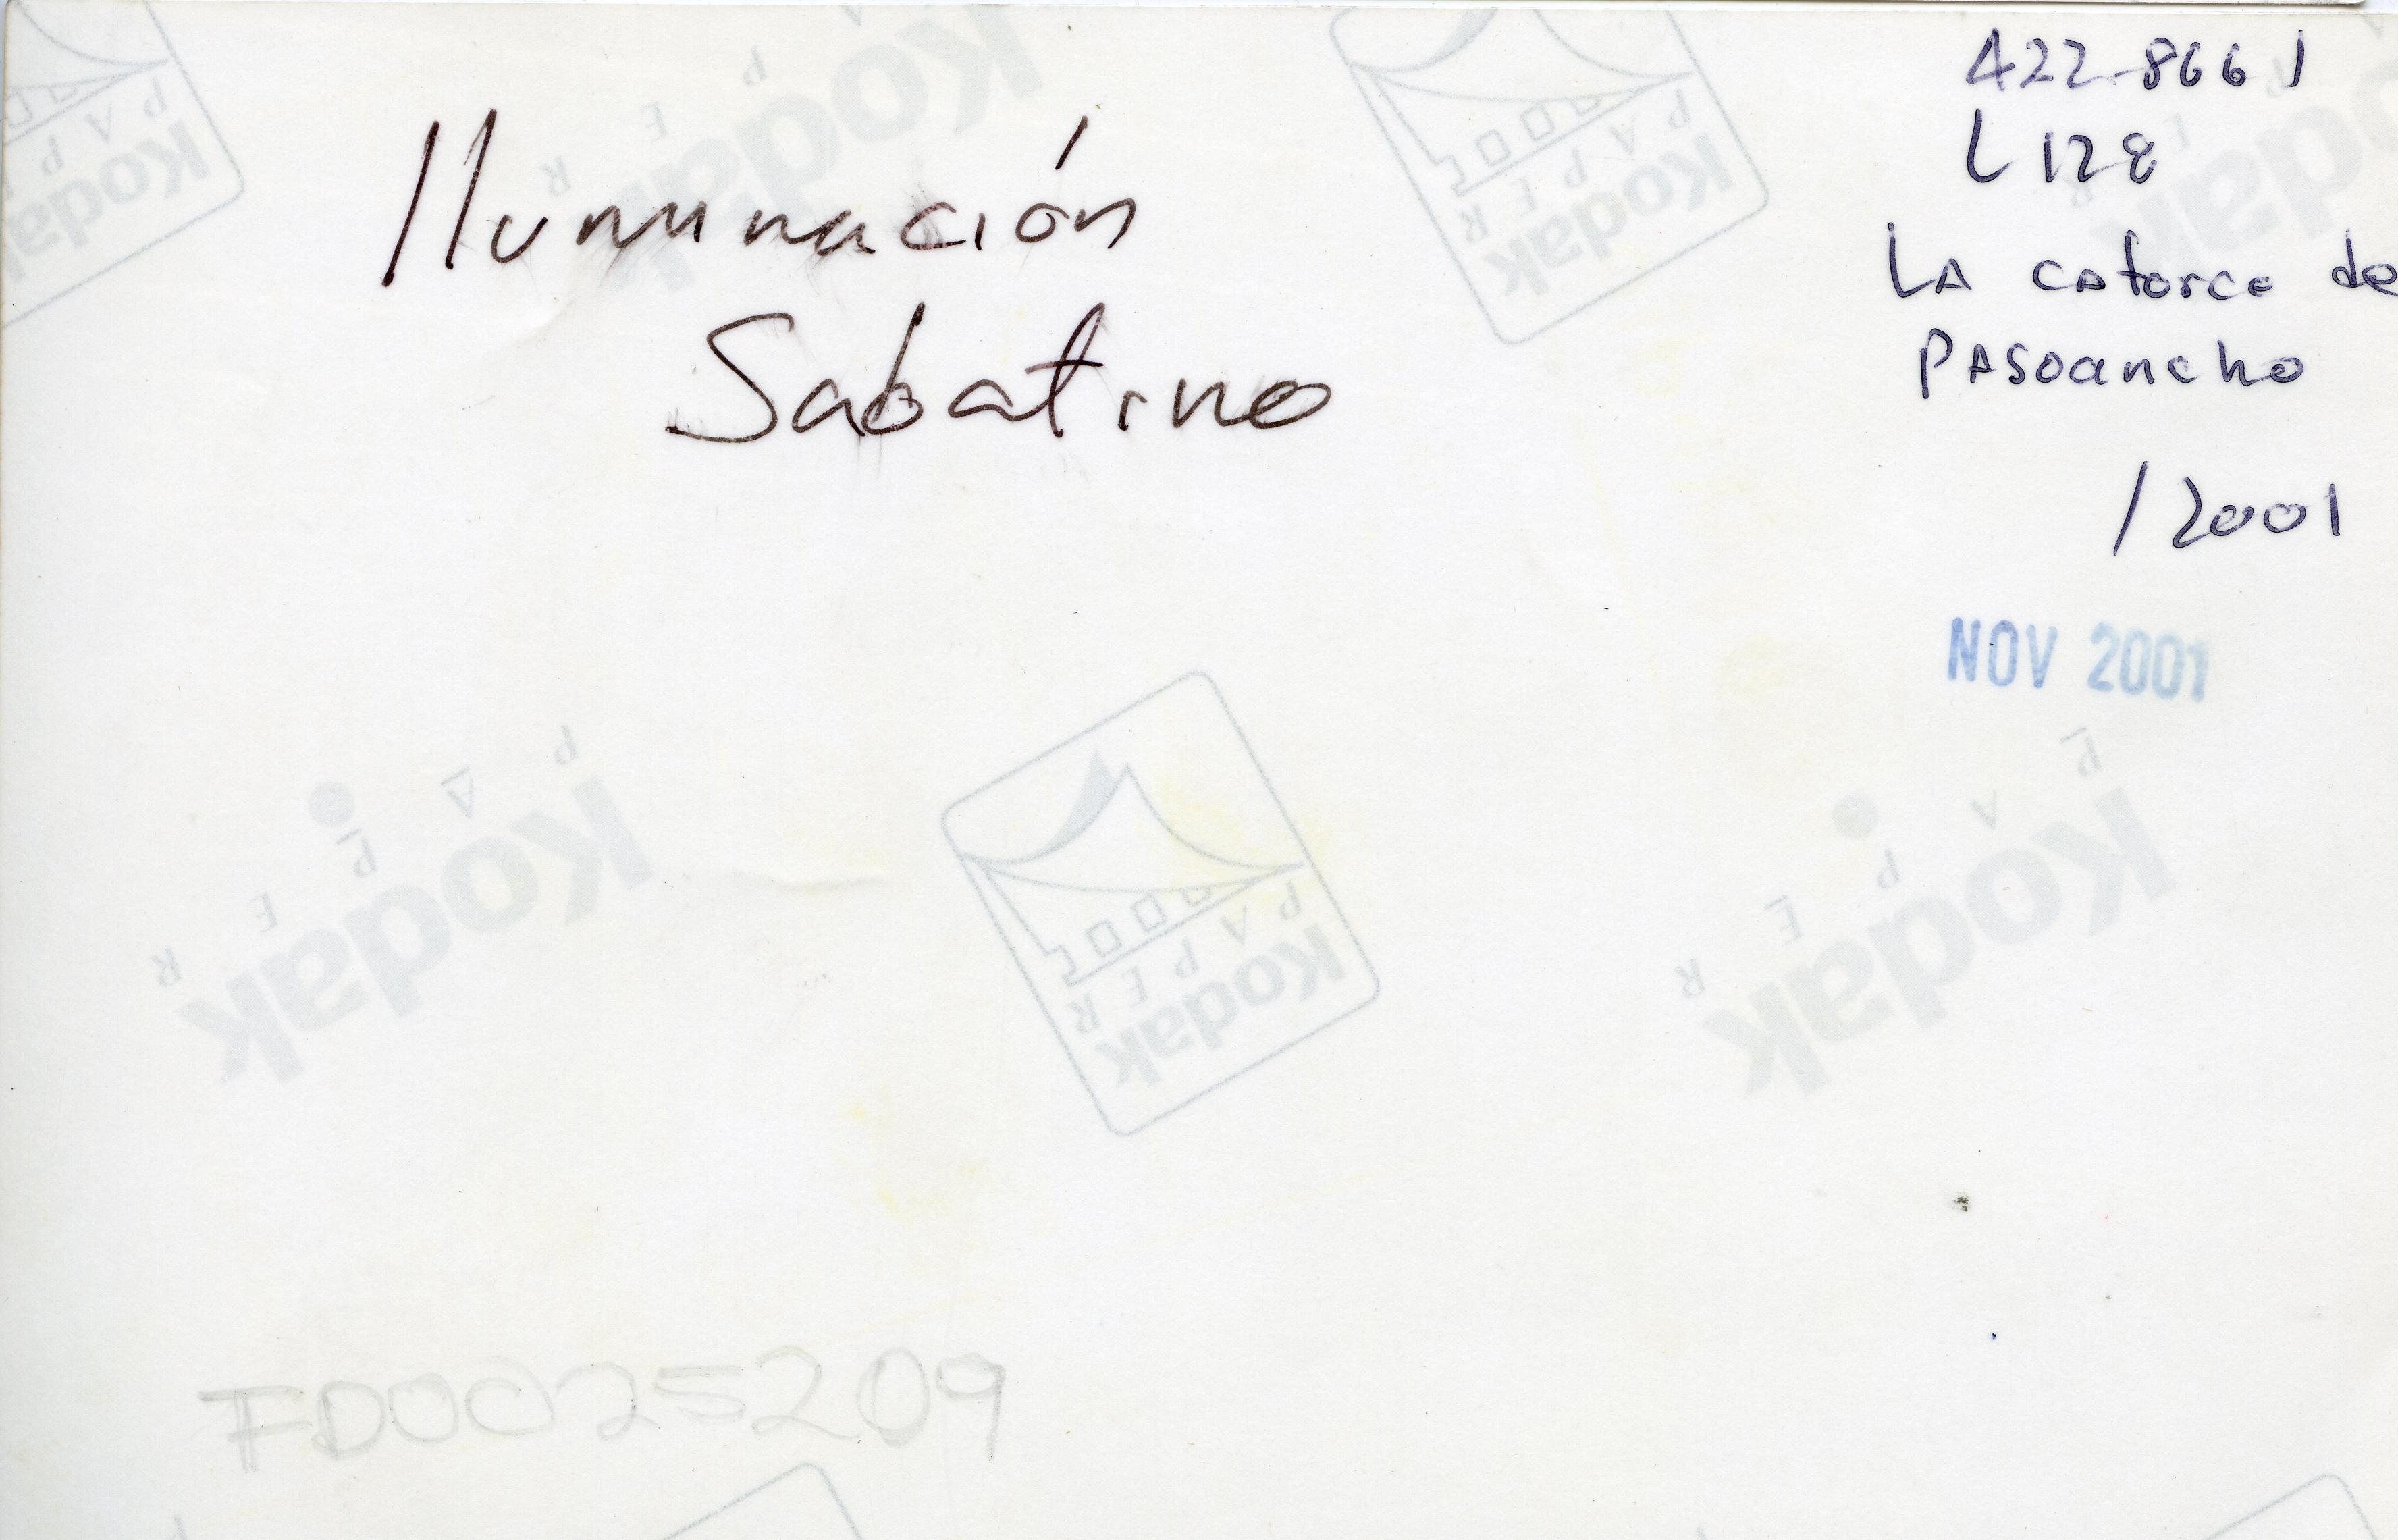 Iluminación
Sabatino
422-8661
L 128
LA catorce de
PASoancho
/2001
NOV 2001
FD0025209
Kodak
PAPER
Kodak
PAPER
Kodak
PAPER
Kodak
PAPER
Kodak
PAPER
Kodak
PAPER